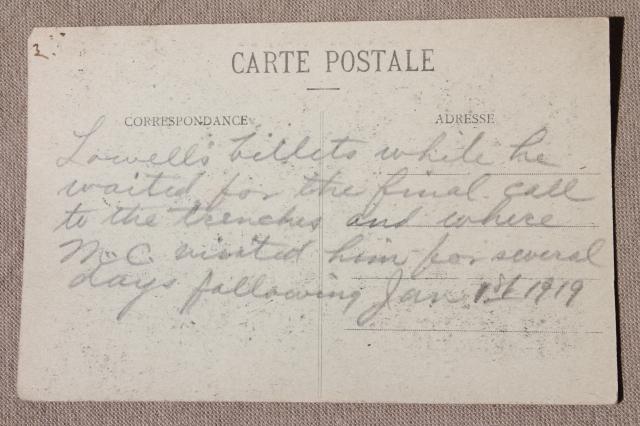 2.
CARTE POSTALE
CORRESPONDANCE
ADRESSE
Lowell's billets while he
waited for the final call
to the trenches and where
M.C. visited him for several
days following Jan 1st 1919